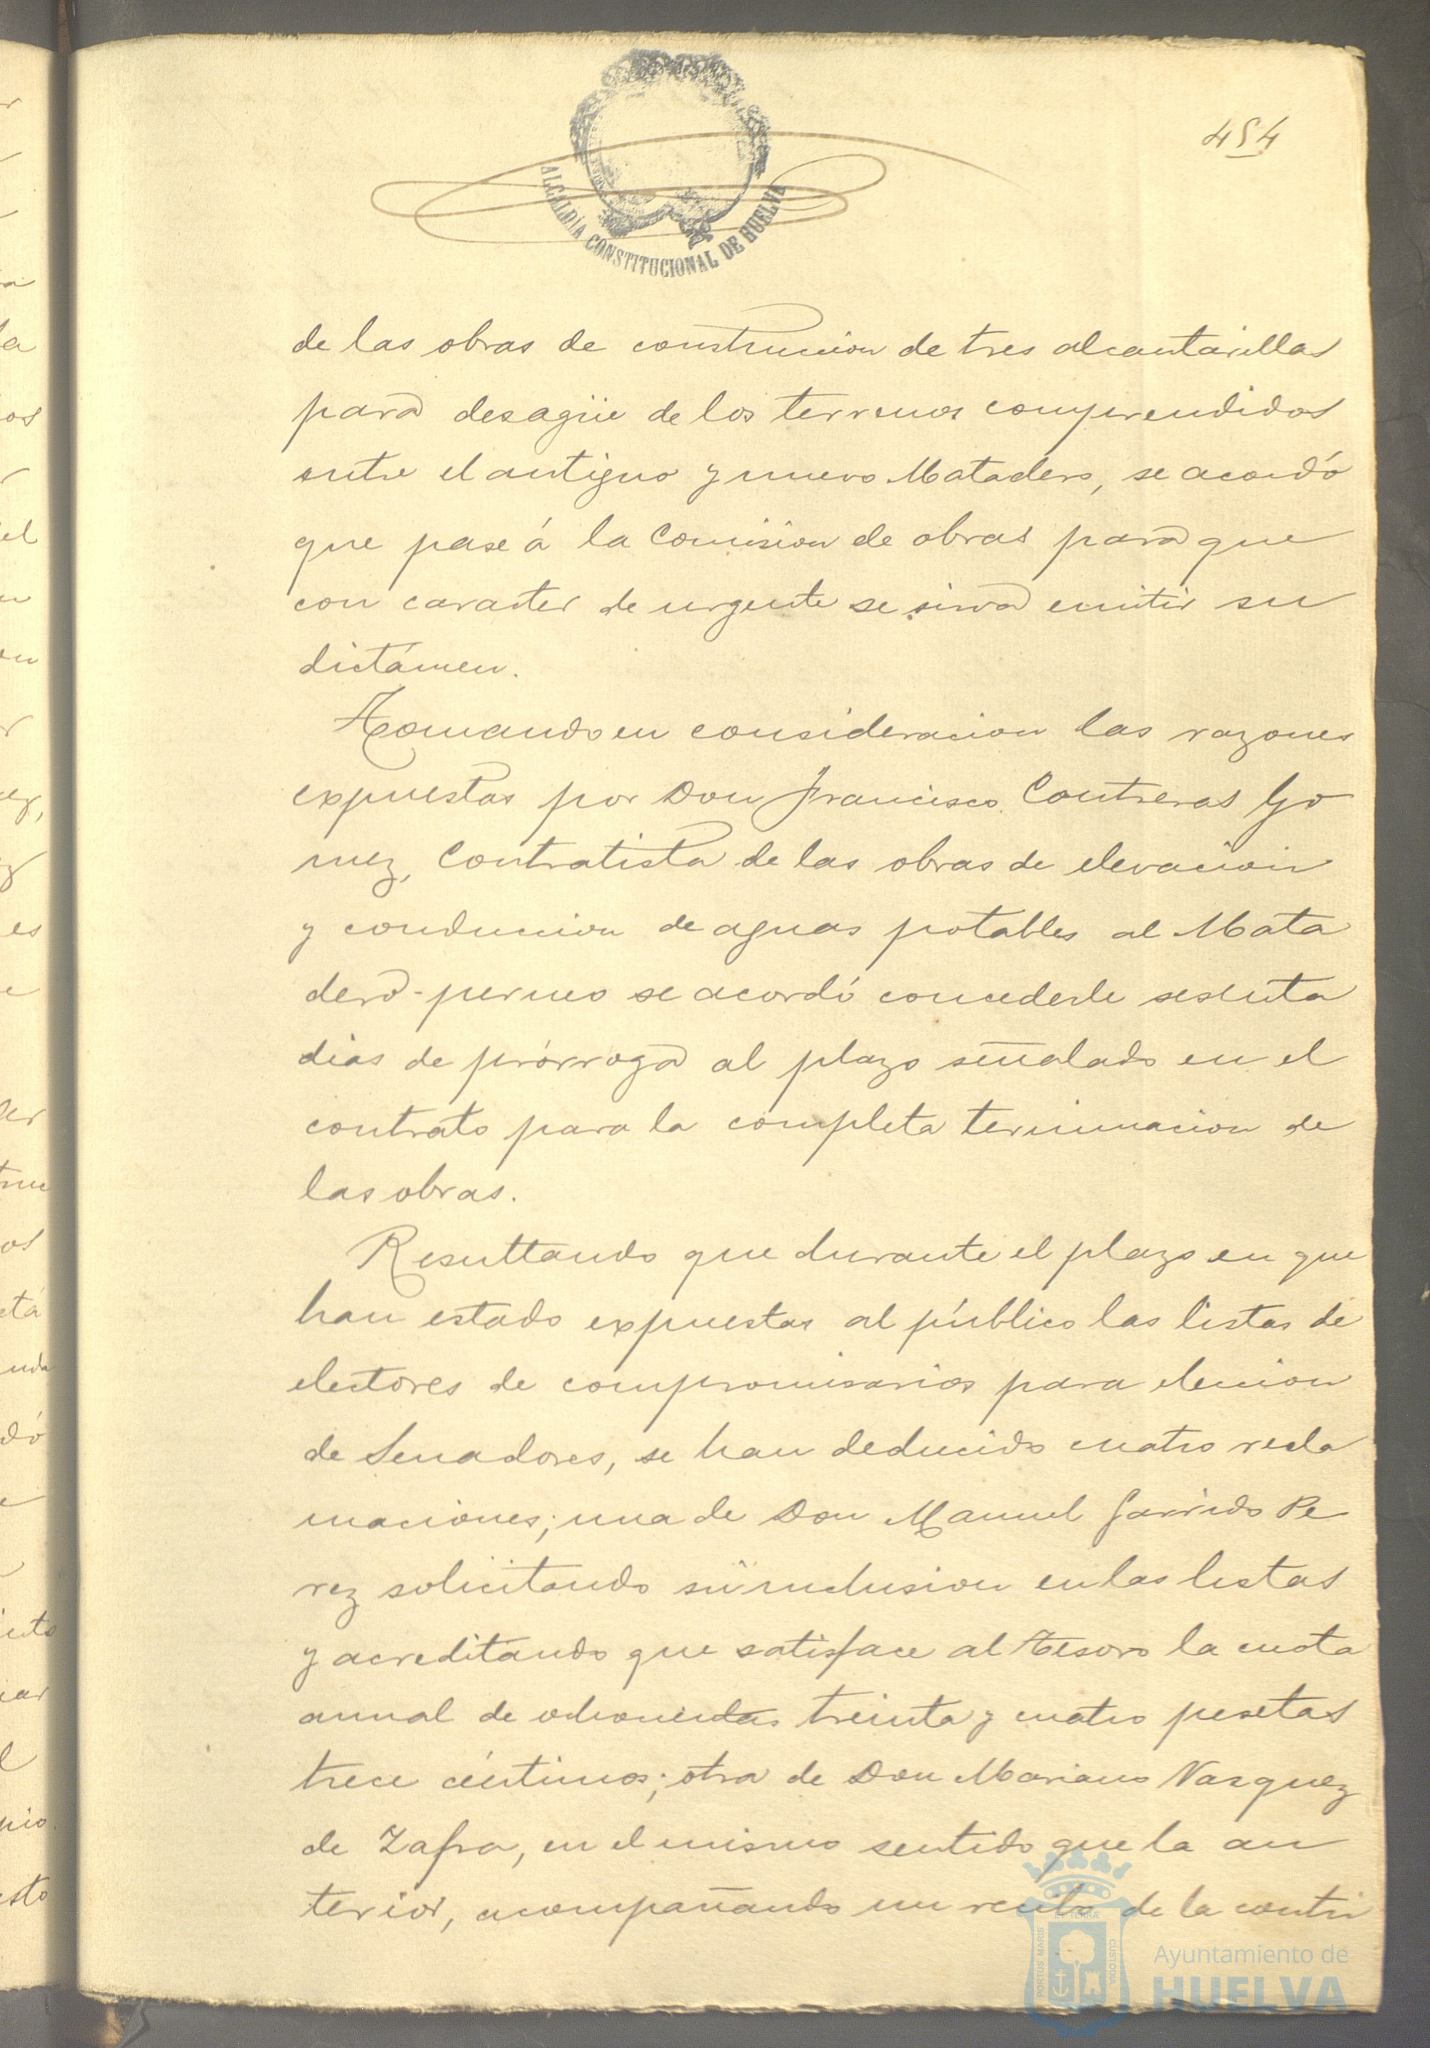 454
ALCALDÍA CONSTITUCIONAL DE HUELVA
de las obras de construccion de tres alcantarillas
para desagüe de los terrenos comprendidos
entre el antiguo y nuevo Matadero, se acordó
que pase á la Comision de obras para que
con caracter de urgente se sirva emitir su
dictámen.
Tomando en consideracion las razones
expuestas por Don Francisco Contreras Go
mez, Contratista de las obras de elevacion
y conduccion de aguas potables al Mata
dero-permeo se acordó concederle sesenta
dias de prórroga al plazo señalado en el
contrato para la completa terminacion de
las obras.
Resultando que durante el plazo en que
han estado expuestas al público las listas de
electores de compromisarios para eleccion
de Senadores, se han deducido cuatro recla
maciones; una de Don Manuel Garrido Pe
rez solicitando su inclusion en las listas
y acreditando que satisface al Tesoro la cuota
anual de ochocientas treinta y cuatro pesetas
trece céntimos; otra de Don Mariano Vazquez
de Zafra, en el mismo sentido que la an
terior, acompañando un recibo de la contri
PORTUS MARIS ET TERRA CUSTODIA
Ayuntamiento de
HUELVA